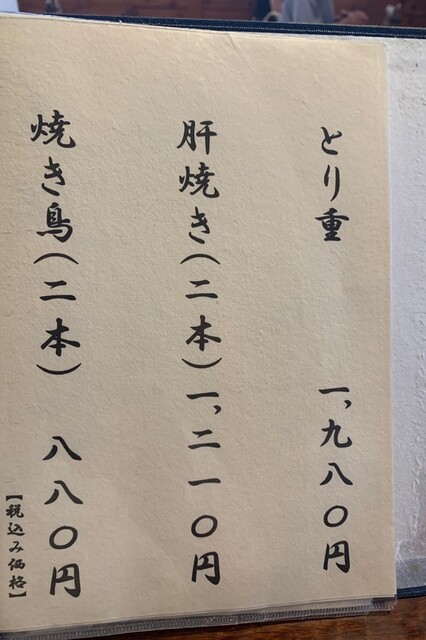 とり重 一、九八〇円
肝焼き(二本)一、二一〇円
焼き鳥(二本) 八八〇円
【税込み価格】